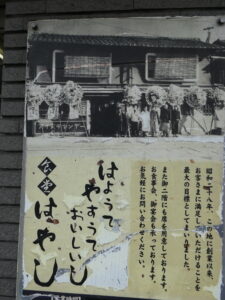 昭和二十八年、この地に創業以来、
お客さまに満足していただけることを
最大の目標としてまいりました。
また御二階にも席を用意しております。
お食事会、御宴会も承っております。
お気軽にお問い合わせください。
はようて
やすうて
おいしいし
食堂
はやし